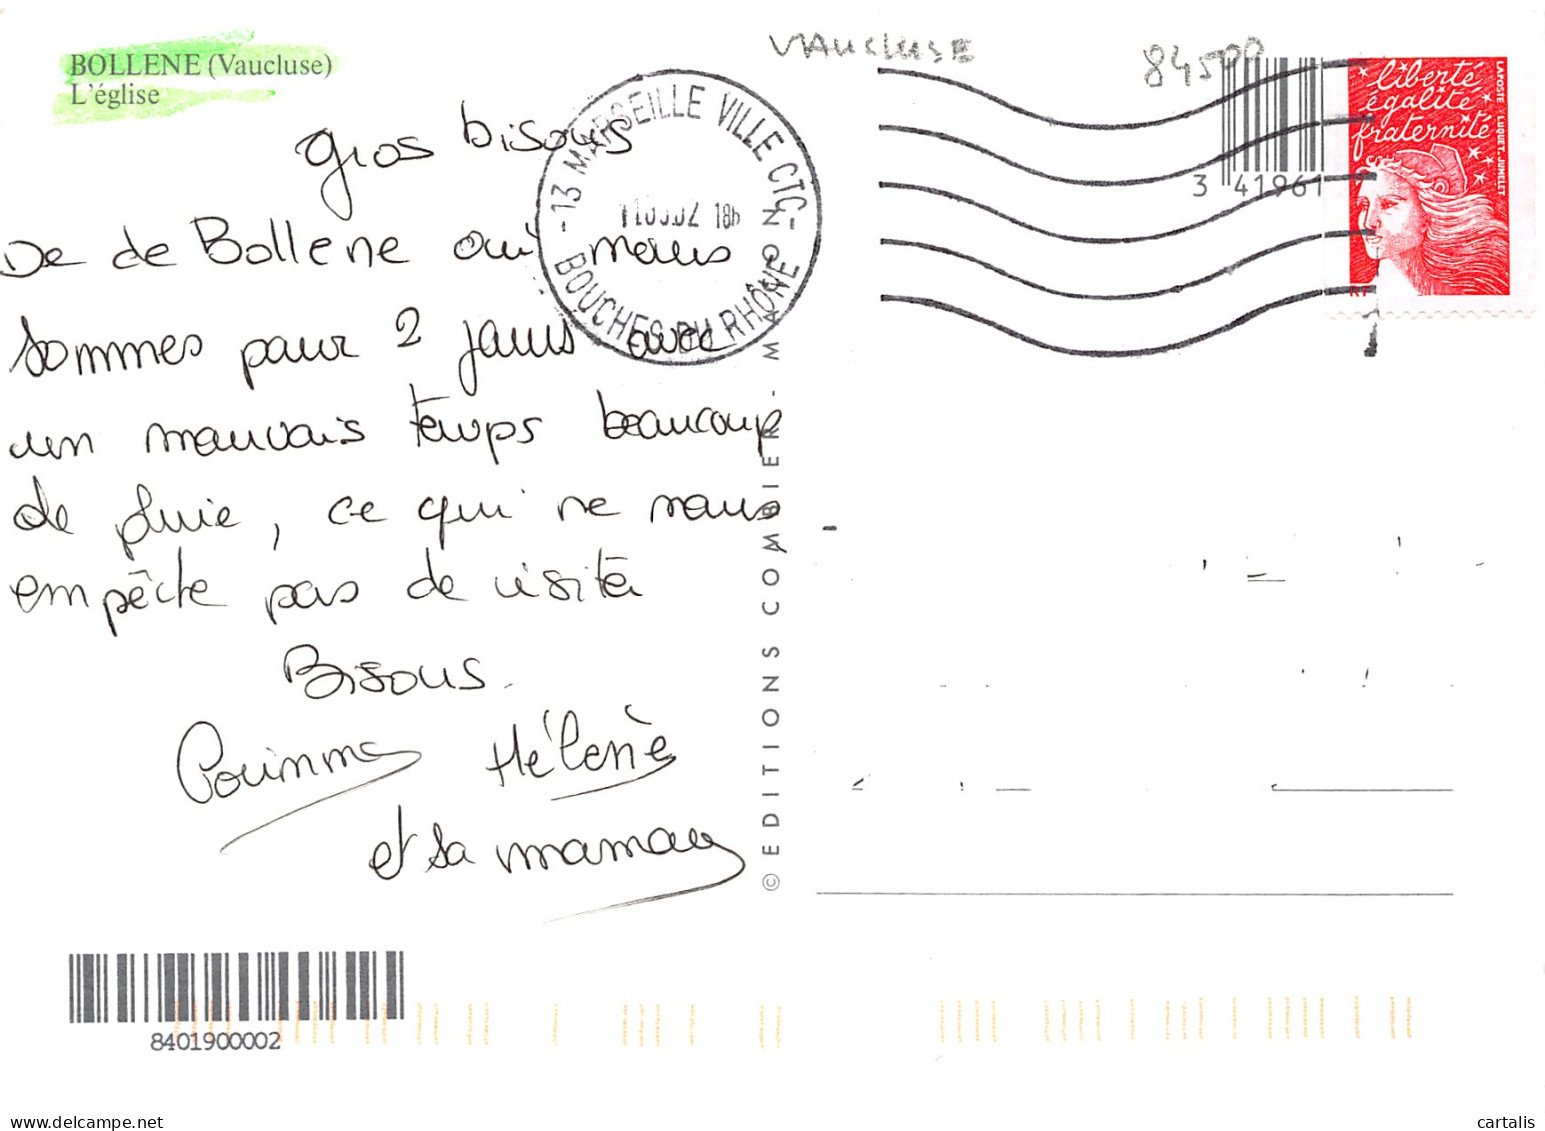 BOLLENE (Vaucluse)
L'église
VAUCLUSE
84500
Gros bisous
De de Bollene oui nous
sommes pour 2 jours avec
un mauvais temps beaucoup
de pluie, ce qui ne nous
empêche pas de visité
Bisous
Hélène
et sa maman
-13 MARSEILLE VILLE CTC-
18h
BOUCHES DU RHÔNE
3 41961
liberté
égalité
fraternité
LAPOSTE LUQUET-JUMELET
RF
© EDITIONS COMBIER - MACON
8401900002
cartalis